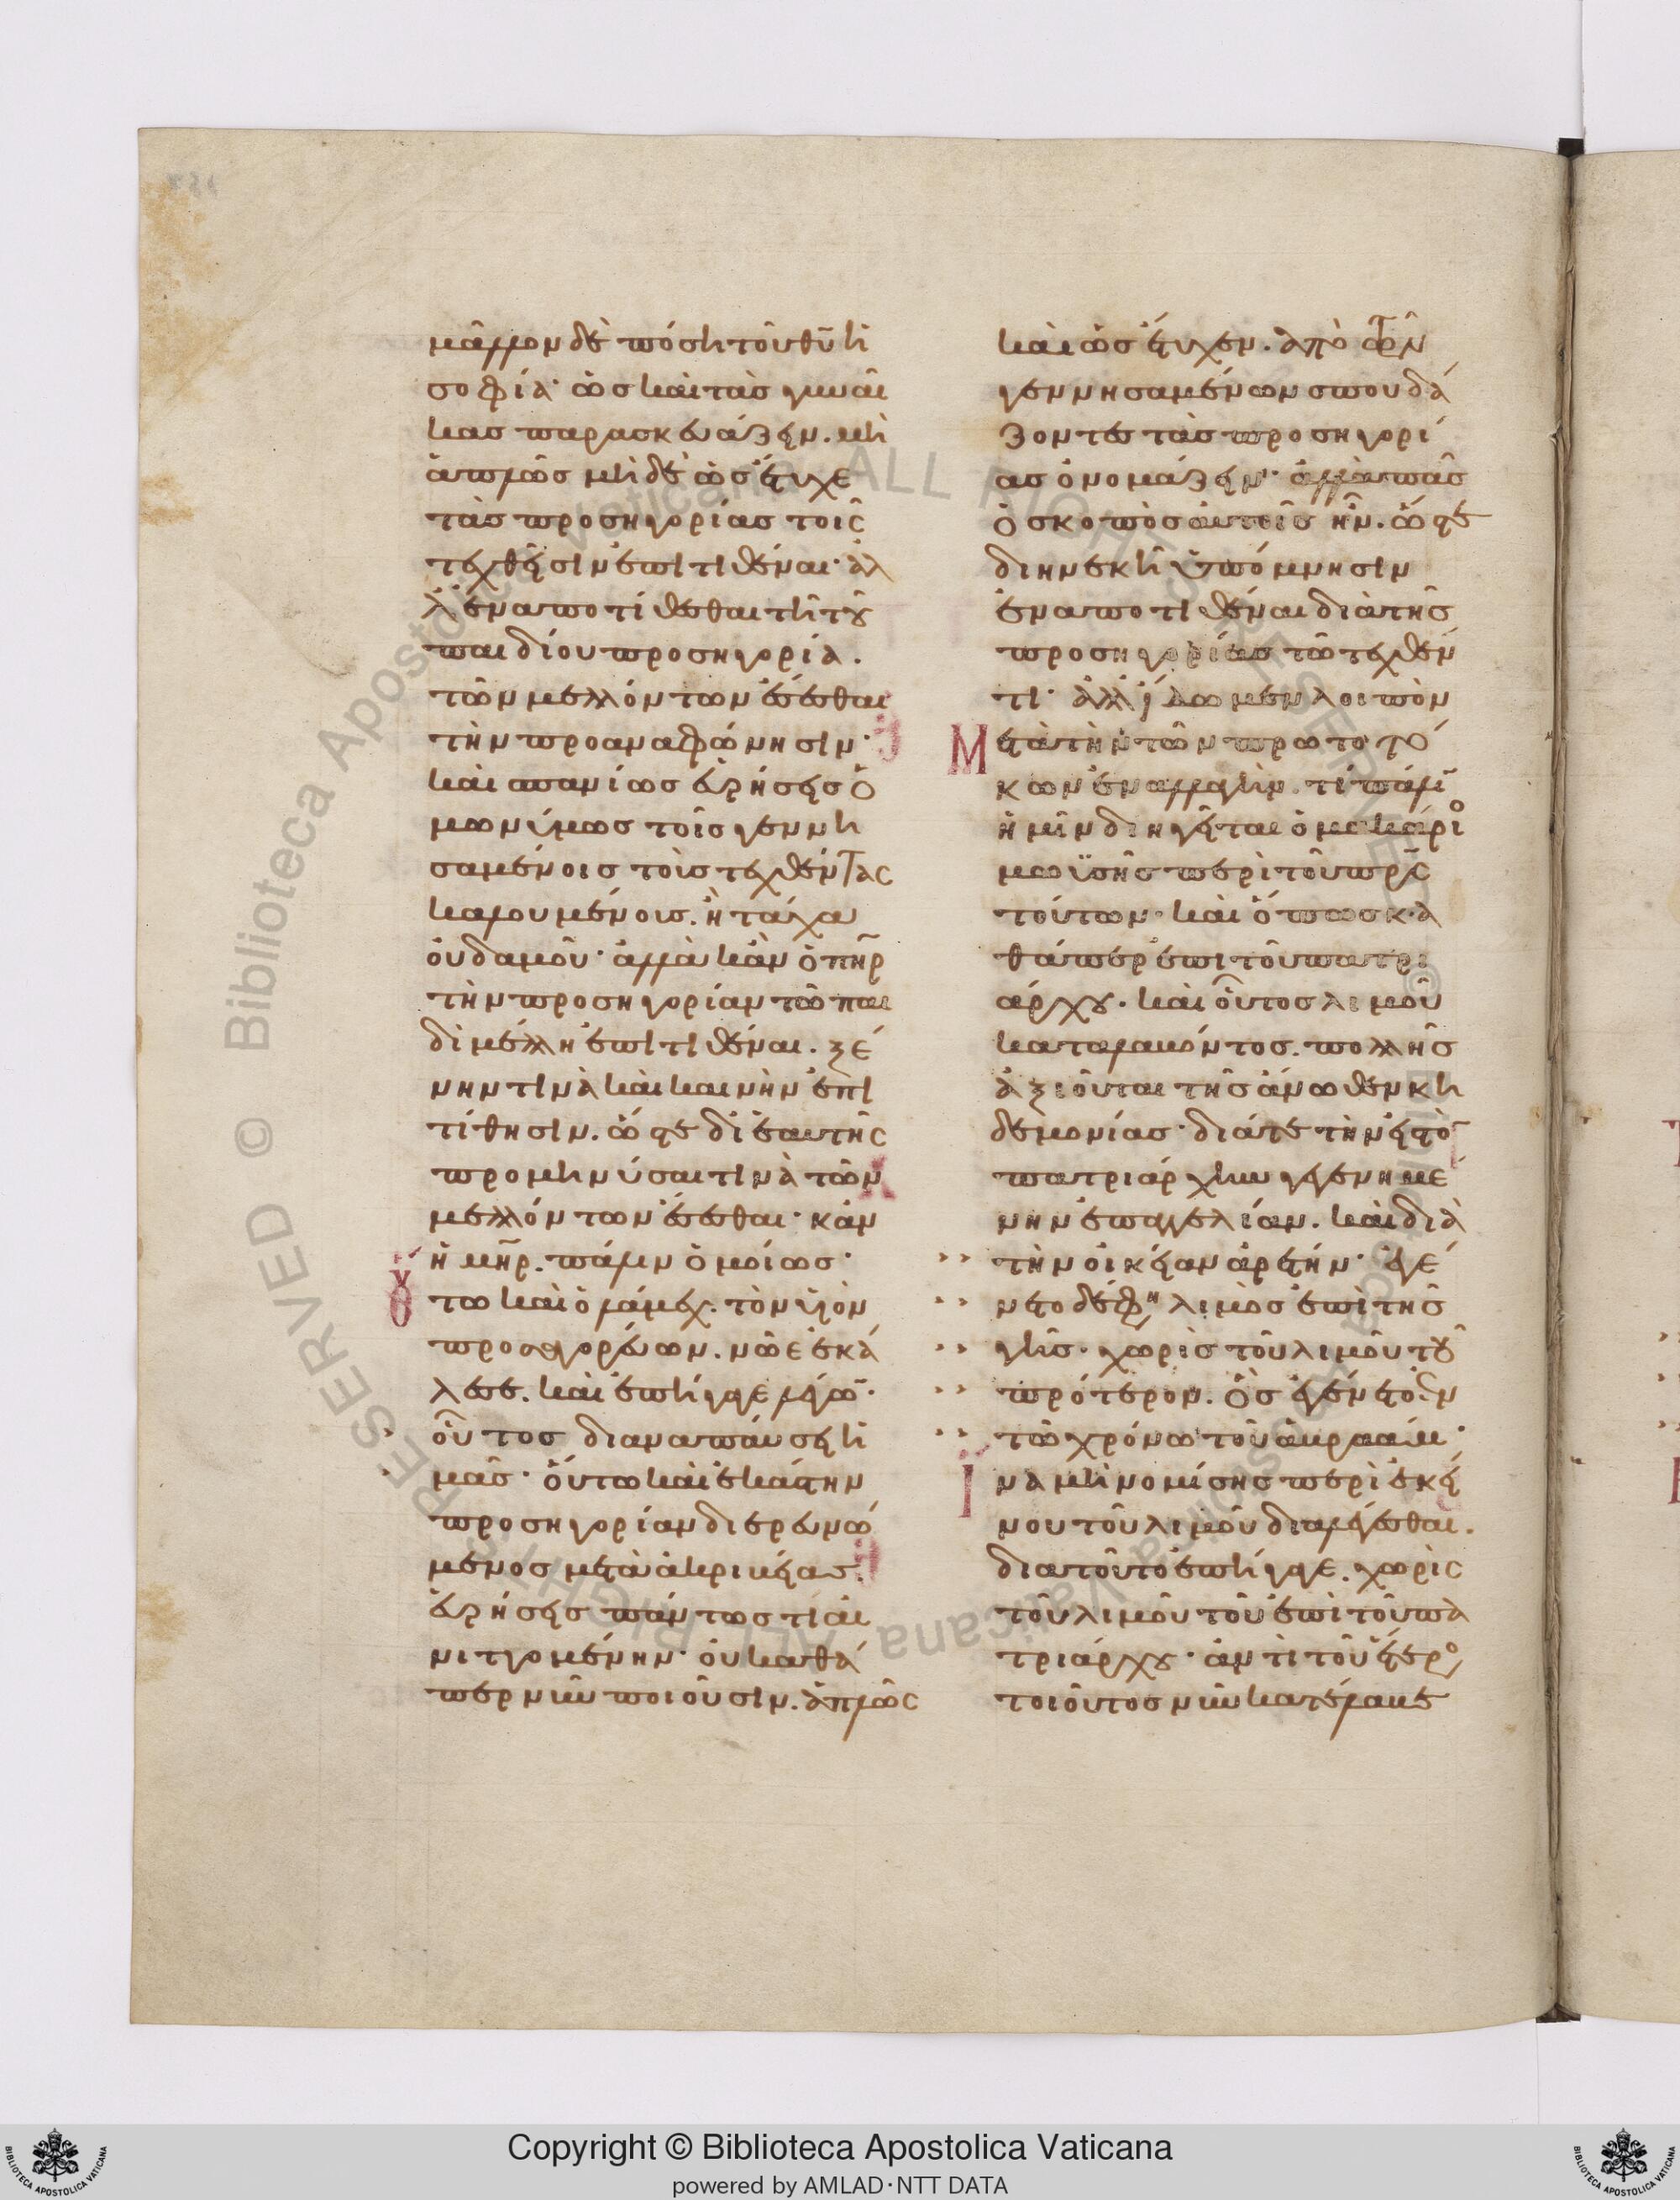 μᾶλλον δὲ πόση τοῦ θῦ ἡ
σοφία· ὡς καὶ τὰς γυναῖ
κας παρασκευάζειν. μὴ
ἁπλῶς μὴ δὲ ὡς ἔτυχε
τὰς προσηγορίας τοῖς
τεχθεῖσιν ἐπιτιθέναι· ἀλ
λ' ἐναποτίθεσθαι τῆ τοῦ
παιδίου προσηγορία.
τῶν μελλόντων ἔσεσθαι
τὴν προαναφώνησιν·
καὶ σπανίως εὑρήσεις ὁ
μωνύμως τοῖς γεννη
σαμένοις τοὺς τεχθέντας
καλουμένους. ἢ τάχα
οὐδαμοῦ· ἀλλὰ κἂν ὁ πηρ
τὴν προσηγορίαν τῶ παι
δὶ μέλλη ἐπιτιθέναι. ξέ
νην τινὰ καὶ καινὴν ἐπι
τίθησιν. ὥστε δι' ἑαυτῆς
προμηνύσαι τινὰ τῶν
μελλόντων ἔσεσθαι· κἂν
ἡ μηρ. πάλιν ὁμοίως·
οὕτω καὶ ὁ λάμεχ. τὸν υἱὸν
προσαγορεύων. νῶε ἐκά
λεσε. καὶ ἐπήγαγε λέγων·
οὗτος διαναπαύσει ἡ
μᾶς· οὕτω καὶ ἑκάστην
προσηγορίαν διερευνώ
μενος μετὰ ἀκριβείας.
εὑρήσεις πάντως τι αἰ
νιττομένην· οὐ καθά
περ νῦν ποιοῦσιν. ἁπλῶς
καὶ ὡς ἔτυχεν. ἀπὸ τῶν
γεννησαμένων σπουδά
ζοντες τὰς προσηγορί
ας ὀνομάζειν· ἀλλὰ πᾶς
ὁ σκοπὸς αὐτοῖς ἦν. ὥστε
διηνεκῆ ὑπόμνησιν
ἐναποτιθέναι διὰ τῆς
προσηγορίας τῶ τεχθέν
τι· ἀλλ' ἴδωμεν λοιπὸν
Μετὰ τὴν τῶν πρωτοτο
κων ἐναλλαγὴν. τί πάλιν
ἡμῖν διηγεῖται ὁ μακάριο
μωϋσῆς περὶ τοῦ πρς
τούτων· καὶ ὅπως κα
θάπερ ἐπὶ τοῦ πατρι
άρχου. καὶ οὗτος λιμοῦ
καταλαβόντος. πολλῆς
ἀξιοῦται τῆς ἄνωθεν κη
δεμονίας· διά τε τὴν εἰς τὸ
πατριάρχην γεγενημέ
νην ἐπαγγελίαν. καὶ διὰ
τὴν οἰκείαν ἀρετήν· ἐγέ
νετο δέ φη λιμὸς ἐπὶ τῆς
γῆς· χωρὶς τοῦ λιμοῦ τοῦ
πρότερον. ὃς ἐγένετο ἐν
τῶ χρόνω τοῦ ἀβραάμ·
ἵνα μὴ νομίσης περὶ ἐκεί
νου τοῦ λιμοῦ διαλέγεσθαι.
διατοῦτο ἐπήγαγε. χωρὶς
τοῦ λιμοῦ τοῦ ἐπὶ τοῦ πα
τριάρχου· ἀντὶ τοῦ ἕτερο
τοιοῦτος νῦν κατέλαβε
Copyright © Biblioteca Apostolica Vaticana
powered by AMLAD·NTT DATA